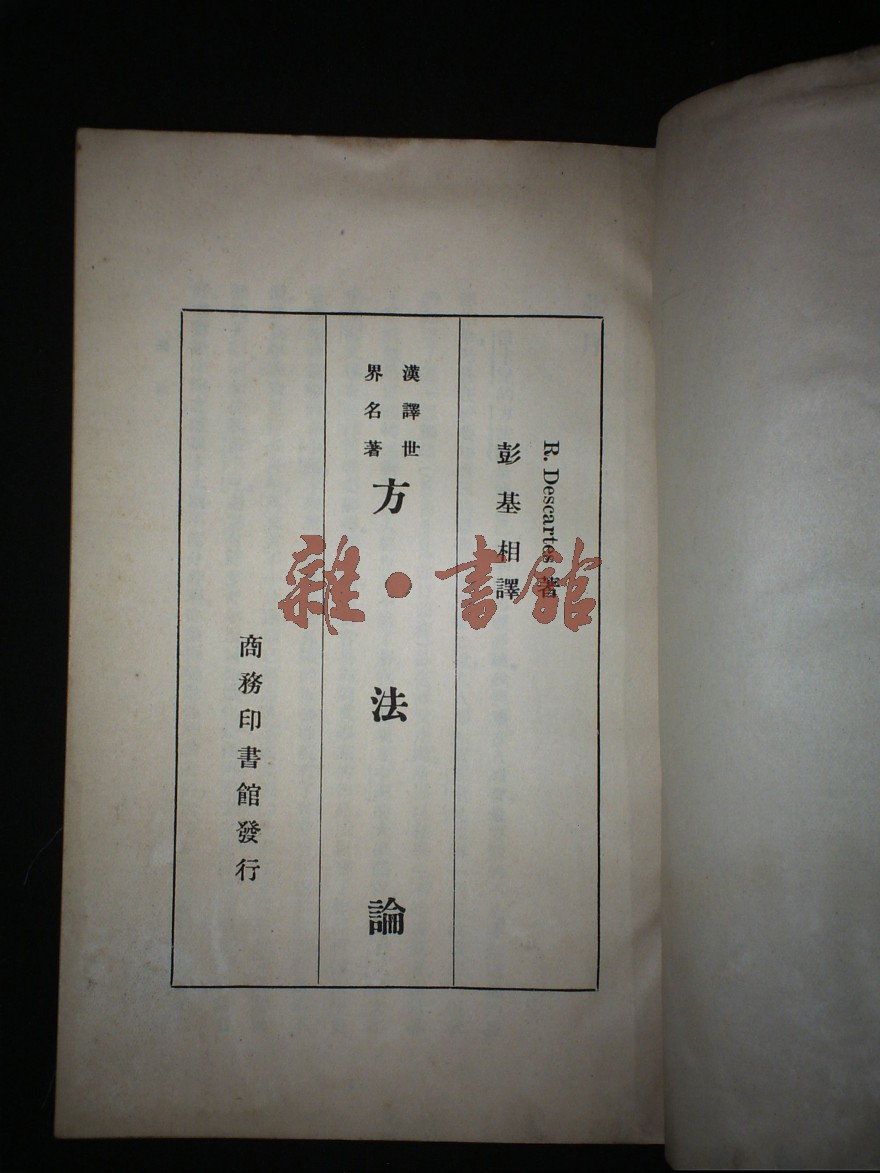 R. Descartes 著
彭基相譯
漢譯世
界名著
方法論
商務印書館發行
雜·書館